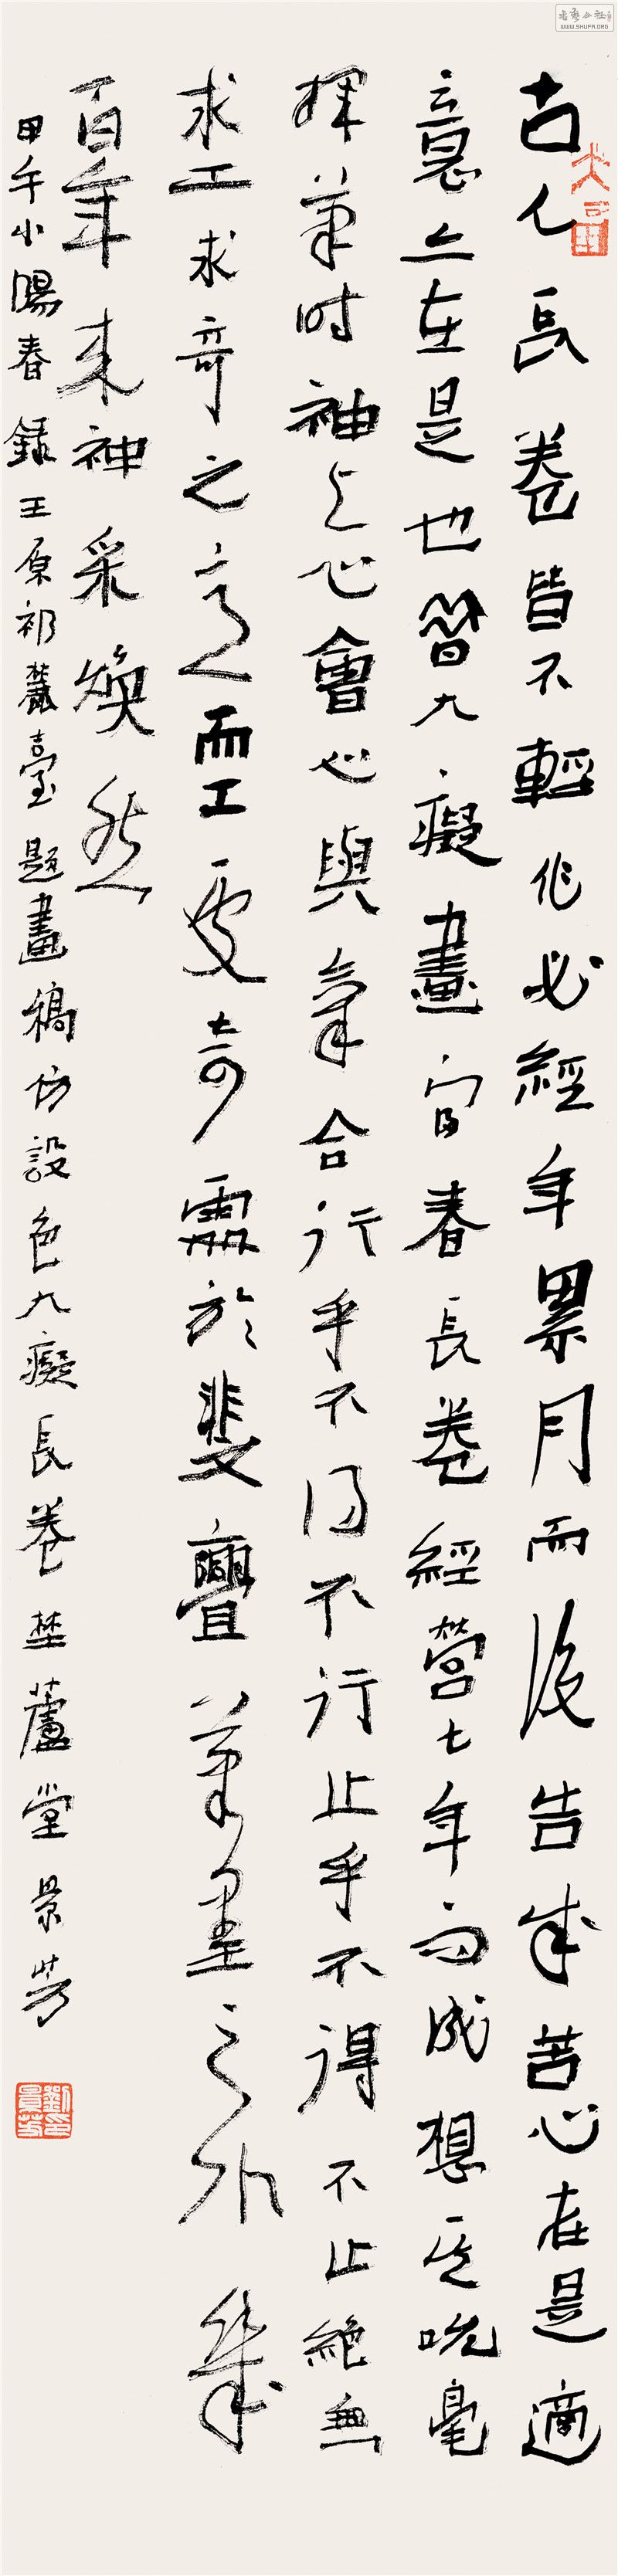 古人長卷皆不輕作必經年累月而後告成苦心在是適
意亦在是也昔大癡畫富春長卷經營七年而成想其吮毫
揮筆時神與心會心與氣合行乎不得不行止乎不得不止絕無
求工求奇之意而工處奇處於斐亹筆墨之外幾
百年來神采煥然
甲午小陽春錄王原祁麓臺題畫稿仿設色大癡長卷埜蘆堂景芳
劉印景芳
WWW.SHUFA.ORG